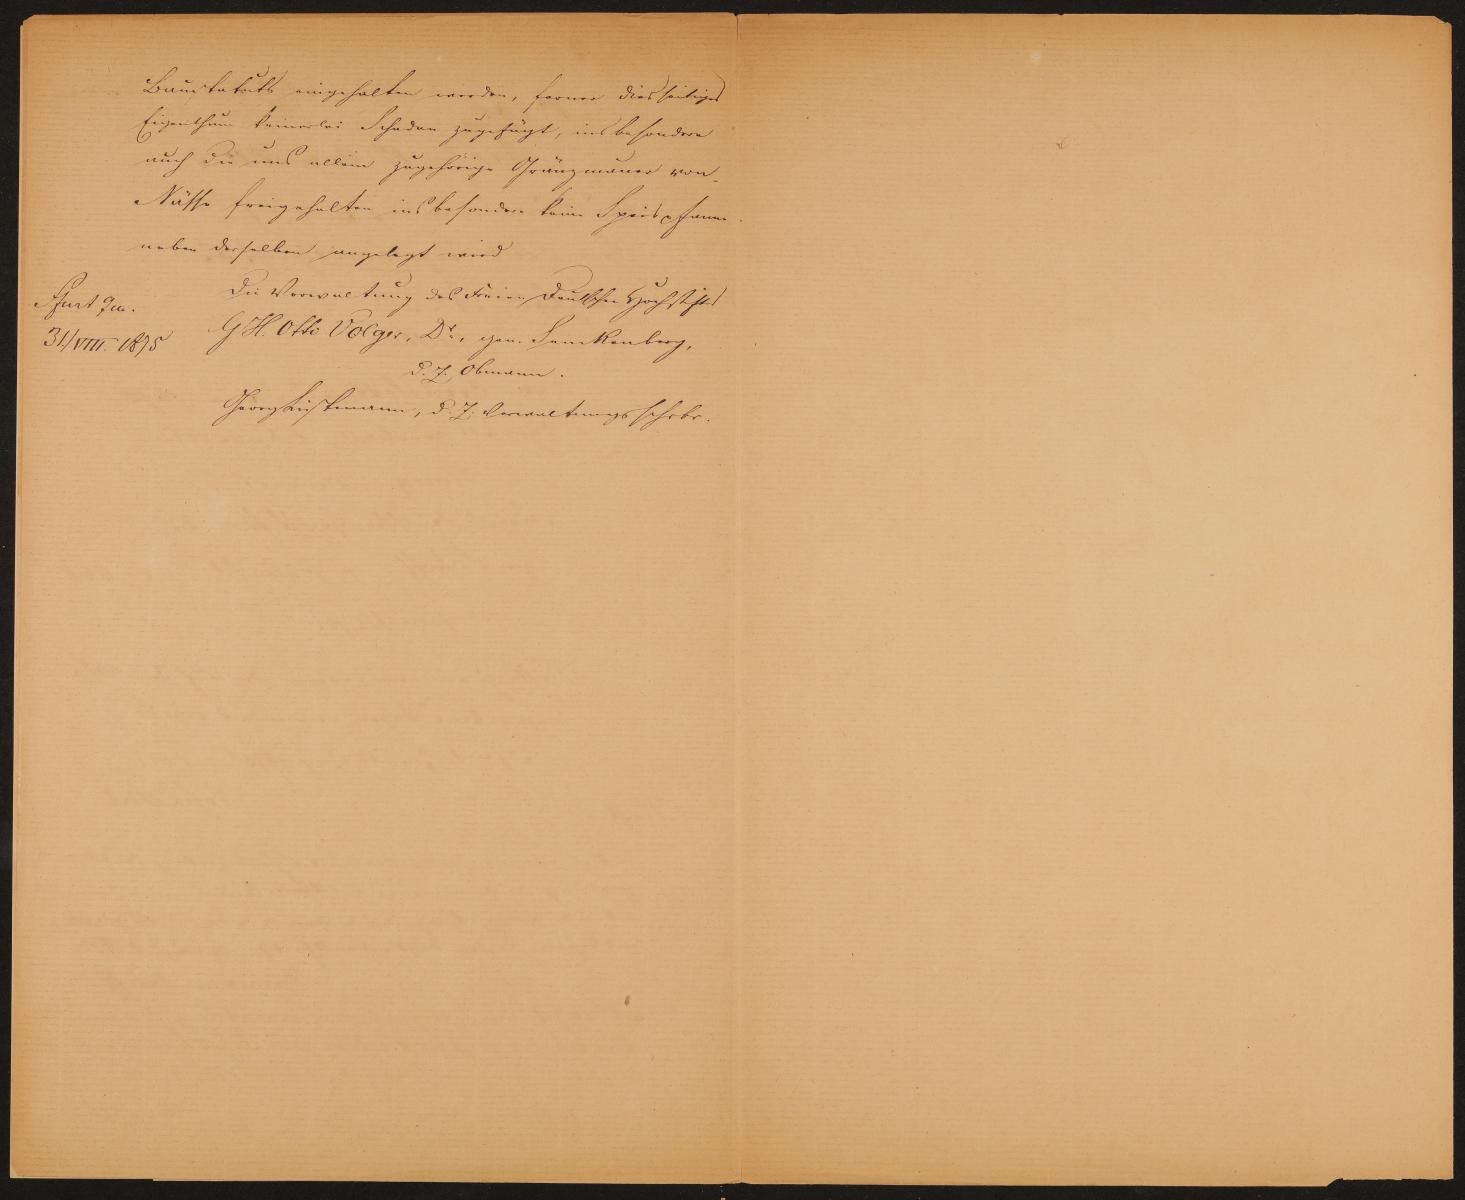 Baustatuts eingehalten werden, ferner diesseitiges
Eigenthum keinerlei Schaden zugefügt, insbesondere
auch die uns allein zugehörige Gränzmauer von
Nässe freigehalten insbesondere keine Speispfanne
neben derselben angelegt wird
Die Verwaltung des Freien Deutschen Hochstiftes
Ffurt
31/VIII. 1875
G H. Otto Volger, Dr., gen. Senckenberg,
d. Z. Obmann.
Georg d. Z. Verwaltungsschrbr.